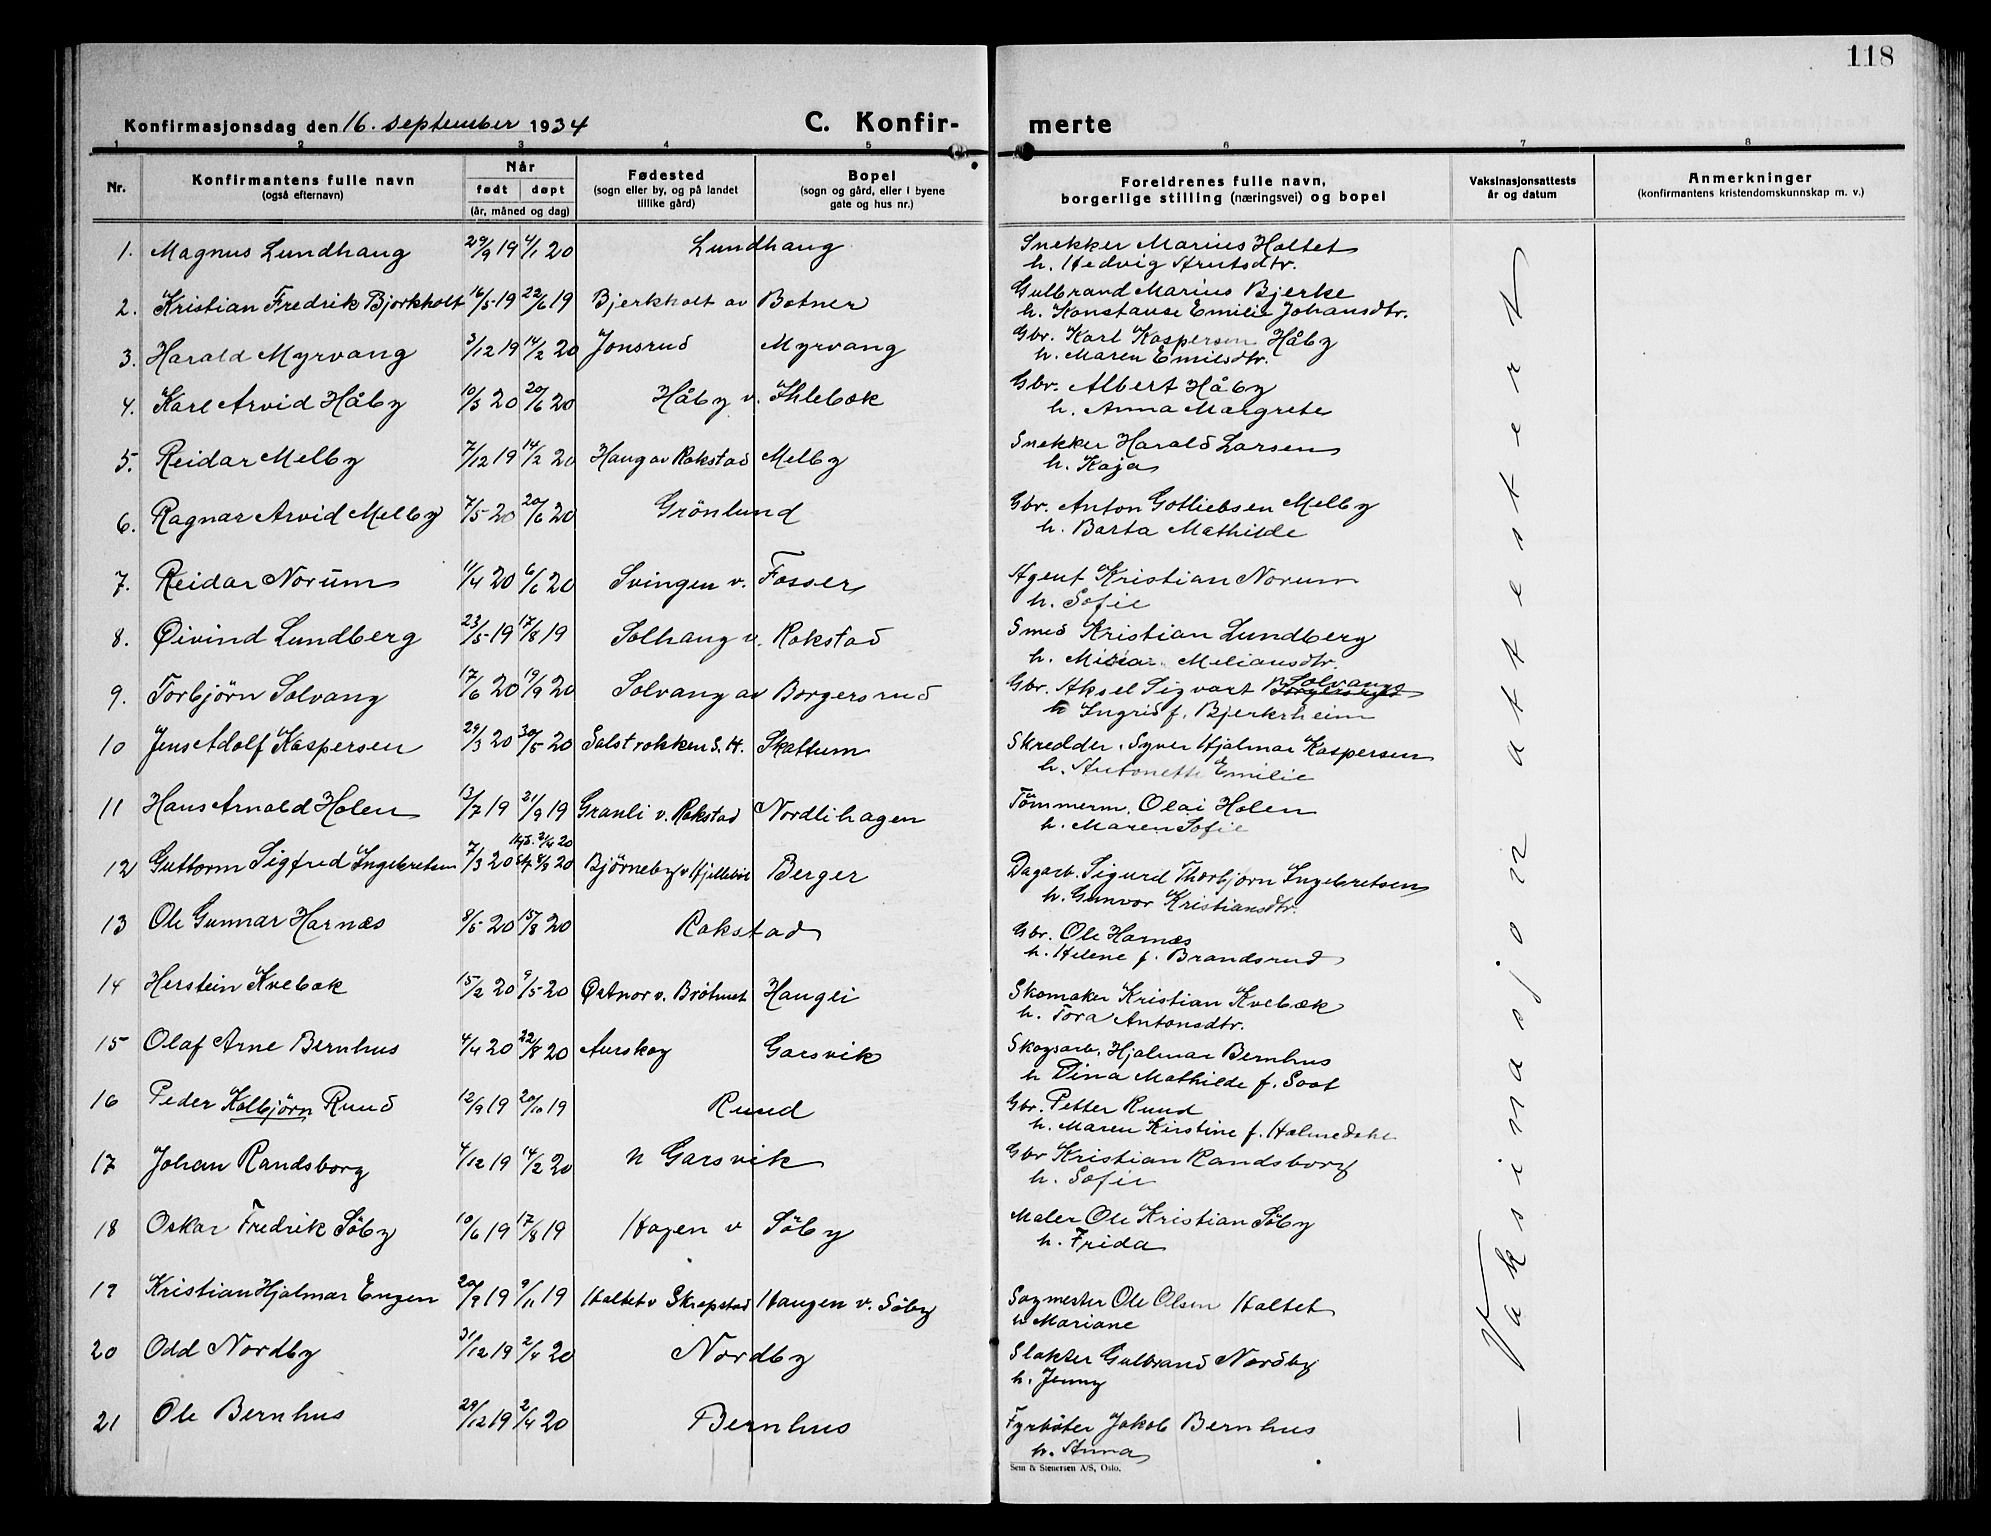 118
Konfirmasjonsdag den 16. september 1934
C. Konfir- merte
1 2 3 4 5 6 7 8
Nr.
Konfirmantens fulle navn
(også efternavn)
Når
født døpt
(år, måned og dag)
Fødested
(sogn eller by, og på landet
tillike gård)
Bopel
(sogn og gård, eller i byene
gate og hus nr.)
Foreldrenes fulle navn,
borgerlige stilling (næringsvei) og bopel
Vaksinasjonsattests
år og datum
Anmerkninger
(konfirmantens kristendomskunnskap m. v.)
1. Magnus Lundhaug 29/9 19 4/1 20 Lundhaug Snekker Marius Holtet
h. Hedvig
2. Kristian Fredrik Bjørkholt 16/5 19 22/6 19 Bjerkholt av Botner Gulbrand Marius Bjerke
h. Konstanse Emilie Johansdtr.
3. Harald Myrvang 3/12 19 14/2 20 Jonsrud Myrvang Gbr. Karl Kaspersen Håby
h. Maren Emilsdtr.
4. Karl Arvid Håby 10/3 20 20/6 20 Håby v. Ihlebæk Gbr. Albert Håby
h. Anna Margrete
5. Reidar Melby 7/12 19 14/2 20 Haug av Rakstad Melby Snekker Harald Larsen
h. Kaja
6. Ragnar Arvid Melby 7/5 20 20/6 20 Grönlund Gbr. Anton Gotliebsen Melby
h. Barta Mathilde
7. Reidar Norum 11/4 20 6/6 20 Svingen v. Fosser Agent Kristian Norum
h. Sofie
8. Øivind Lundberg 23/5 19 17/8 19 Solhaug v. Rakstad Smed Kristian Lundberg
h. Meliansdtr.
9. Torbjörn Solvang 17/6 20 19/9 20 Solvang av Borgersrud Gbr. Aksel Sigvart Borgersrud Solvang
h Ingrid f. Bjerkeheim
10 Jens Adolf Kaspersen 29/3 20 30/5 20 Salstrokken S. H. Skattum Skredder Syver Hjalmar Kaspersen
h. Antonette Emilie
11 Hans Arnold Holen 13/7 19 21/9 19 Granli v. Rakstad Nordlihagen Tömmerm. Olai Holen
h. Maren Sofie
12 Guttorm Sigfred Ingebretsen 7/3 20 Hjd. 2/4 20 Stf. 8/8 20 Björneby v Hjellebøl Berger Dagarb. Sigurd Thorbjørn Ingebretsen
h. Gunvor Kristiansdtr.
13 Ole Gunnar Harnæs 8/5 20 15/8 20 Rakstad Gbr. Ole Harnæs
h. Helene f. Brandsrud
14 Herstein Kvebæk 15/2 20 9/5 20 Østnor v. Bråtnet Haugli Skomaker Kristian Kvebæk
h. Tora Antonsdtr.
15 Olaf Arne Bernhus 4/4 20 22/8 20 Aurskog Garsvik Skogsarb. Hjalmar Bernhus
h Dina Mathilde f. Soot
16 Peder Kolbjörn Ruud 12/9 19 20/10 19 Ruud Gbr. Petter Ruud
h. Maren Kirstine f. Holmedahl
17 Johan Randsborg 4/12 19 14/2 20 n Garsvik Gbr Kristian Randsborg
h. Sofie
18 Oskar Fredrik Söby 10/6 19 17/8 19 Hagen v Söby Maler Ole Kristian Söby
h. Frida
19 Kristian Hjalmar Engen 20/9 19 9/11 19 Holtet v Skrepstad Haugen v. Söby Sagmester Ole Olsen Holtet
h Mariane
20 Odd Nordby 31/12 19 2/4 20 Nordby Slakter Gulbrand Nordby
h. Jenny
21 Ole Bernhus 29/12 19 2/4 20 Bernhus Fyrbøter Jakob Bernhus
h. Anna
— Vaksinasjon attestert
Sem & Stenersen A/S, Oslo.